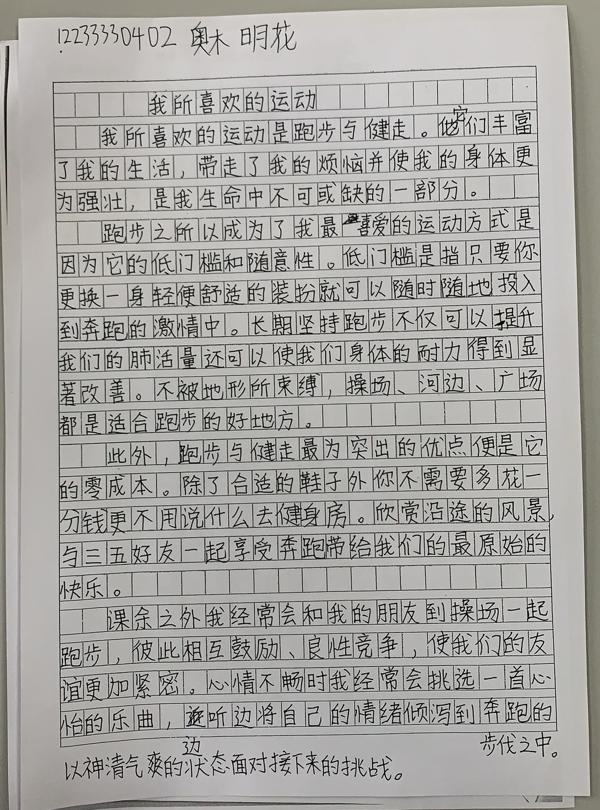 12233330402 奥木 明花
我所喜欢的运动
我所喜欢的运动是跑步与健走。它们丰富
了我的生活，带走了我的烦恼并使我的身体更
为强壮，是我生命中不可或缺的一部分。
跑步之所以成为了我最喜爱的运动方式是
因为它的低门槛和随意性。低门槛是指只要你
更换一身轻便舒适的装扮就可以随时随地投入
到奔跑的激情中。长期坚持跑步不仅可以提升
我们的肺活量还可以使我们身体的耐力得到显
著改善。不被地形所束缚，操场、河边、广场
都是适合跑步的好地方。
此外，跑步与健走最为突出的优点便是它
的零成本。除了合适的鞋子外你不需要多花一
分钱更不用说什么去健身房。欣赏沿途的风景，
与三五好友一起享受奔跑带给我们的最原始的
快乐。
课余之外我经常会和我的朋友到操场一起
跑步，彼此相互鼓励、良性竞争，使我们的友
谊更加紧密。心情不畅时我经常会挑选一首心
怡的乐曲，边听边将自己的情绪倾泻到奔跑的
步伐之中。
以神清气爽的状态面对接下来的挑战。